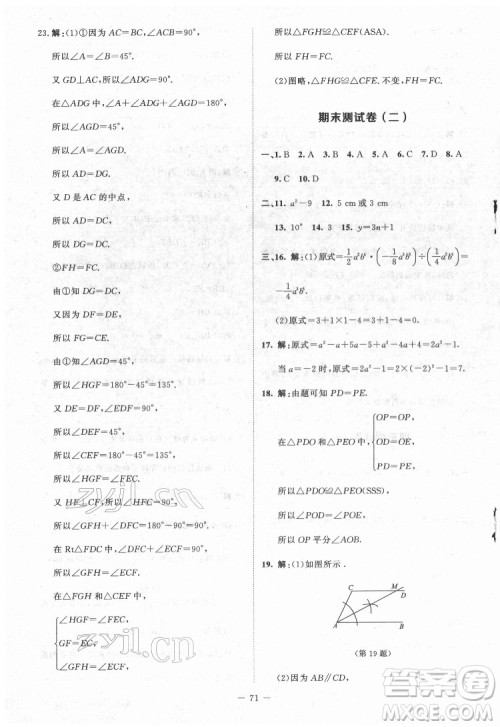 23. 解:(1)①因为 AC=BC,∠ACB=90°,
所以∠A=45°.
又 GD⊥AC,所以∠ADG=90°.
在△ADG 中,∠A+∠ADG+∠AGD=180°,
所以∠AGD=45°,
所以∠A=∠AGD,
所以 AD=DG.
又 D 是 AC 的中点,
所以 AD=DC,
所以 DG=DC.
②FH=FC.
由①知 DG=DC,
又因为 DF=DE,
所以 FG=CE.
由①知∠AGD=45°,
所以∠HGF=180°-45°=135°.
又 DE=DF,∠EDF=90°,
所以∠DEF=45°,
所以∠CEF=180°-45°=135°,
所以∠HGF=∠FEC.
又 FH⊥CF,所以∠HFC=90°,
所以∠GFH+∠DFC=90°.
在 Rt△FDC 中,∠DFC+∠ECF=90°,
所以∠GFH=∠ECF.
在△FGH 和△CEF 中,
∠HGF=∠FEC,
GF=EC,
∠GFH=∠ECF,
所以△FGH≌△CEF(ASA).
所以 FH=FC.
(2)图略,△FGH≌△CFE. 不变,FH=FC.
期末测试卷(二)
一、1. B 2. A 3. B 4. A 5. C 6. B 7. B 8. A
9. C 10. D
二、11. a²-9 12. 5 cm 或 3 cm
13. 10° 14. 3 15. y=3n+1
三、16. 解:(1)原式=
(2)原式=3+1×1-4=3+1-4=0.
17. 解:原式=a²-a+a²+5a-4a-5=2a²-5.
当 a=-2 时,原式=2a²-5=2×4-5=3.
18. 解:由题可知 PD=PE.
OP=OP,
在△PDO 和△PEO 中, OD=OE,
PD=PE,
所以△PDO≌△PEO(SSS),
所以 OP 平分∠AOB.
19. 解:(1)如图所示.
C M D
A B
(第 19 题)
(2)因为 AB∥CD,
— 71 —